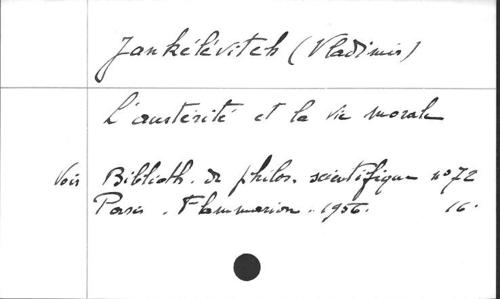 Jankélévitch (Vladimir)
L'austérité et la vie morale
Voir Biblioth. de philos. scientifique n°72
Paris. Flammarion. 1956. 16.